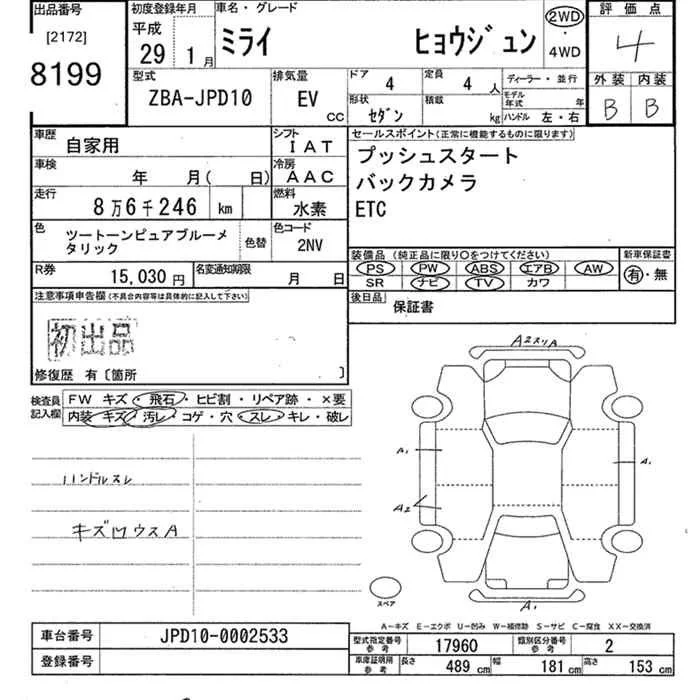 出品番号
[2172]
8199
初度登録年月
平成
29 1月
車名・グレード
ミライ ヒョウジュン
2WD
・
4WD
評価点
4
外装 内装
B B
型式
ZBA-JPD10
排気量
EV
CC
ドア
4
定員
4 人
ディーラー・並行
モデル年式 年
形状
セダン
積載
kg
ハンドル 左・右
車歴 自家用
シフト
IAT
車検 年 月( 日)
冷房
AAC
走行
8万6千246 km
燃料
水素
色
ツートーンピュアブルーメ
タリック
色替
色コード
2NV
R券
15,030 円
名変通知期限
月 日
セールスポイント(正常に機能するものに限ります)
プッシュスタート
バックカメラ
ETC
装備品 (純正品に限り○をつけてください)
新車保証書
PS PW ABS エアB AW
SR ナビ TV カワ
有・無
後日品
保証書
注意事項申告欄(不具合内容等は具体的に記入して下さい)
初出品
修復歴 有〔箇所 〕
検査員
記入欄
FW キズ・飛石・ヒビ割・リペア跡・×要
内装・キズ・汚レ・コゲ・穴・スレ・キレ・破レ
ハンドルスレ
キズ凹ウスA
A2スリA
A1
A1
A2
A1
スペア
A−キズ E−エクボ U−凹み W−補修跡 S−サビ C−腐食 XX−交換済
車台番号
JPD10-0002533
登録番号
型式指定番号
参考
17960
類別区分番号
参考
2
車庫証明用
参考
長さ 489 cm 幅 181 cm 高さ 153 cm